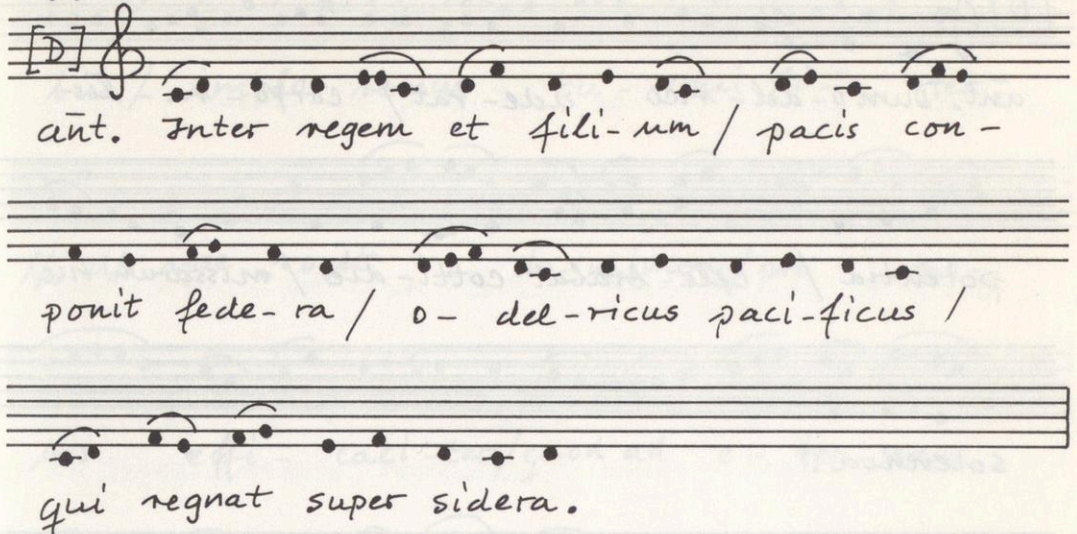 [D]
ant. Inter regem et fili-um / pacis con-
ponit fede-ra / o- del-ricus paci-ficus /
qui regnat super sidera.